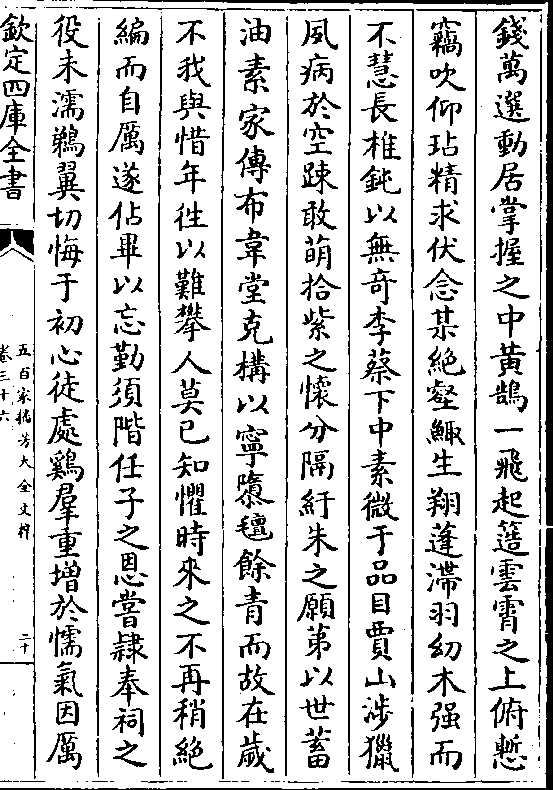 錢萬選動居掌握之中黃鵠一飛起簉雲霄之上俯慙
竊吹仰玷精求伏念某絶壑鯫生翔蓬滯羽幼木强而
不慧長椎鈍以無奇李蔡下中素微于品目賈山涉獵
夙病於空踈敢萌拾紫之懐分隔紆朱之願第以世蓄
油素家傳布韋堂克構以寧隳氊餘青而故在歲
不我與惜年徃以難攀人莫已知懼時來之不再稍絶
編而自厲遂佔畢以忘勤須階任子之恩嘗隷奉祠之
役未濡鵜翼切悔于初心徒處鷄羣重增於懦氣因厲
欽定四庫全書
五百家播芳大全文粹
卷三十六
二十